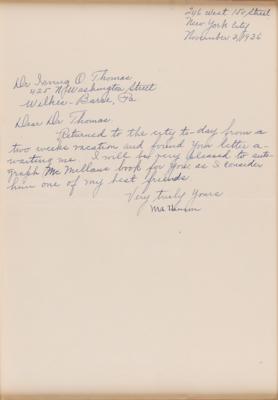 246 West 150 Street
New York City
November 2, 1936
Dr Irving D. Thomas
425 N. Washington Street
Wilkes-Barre, Pa
Dear Dr Thomas:
Returned to the city to-day from a
two weeks vacation and found your letter a-
waiting me. I will be very pleased to auto-
graph Mc Millans book for you as I consider
him one of my best friends.
Very truly yours
M.A. Henson